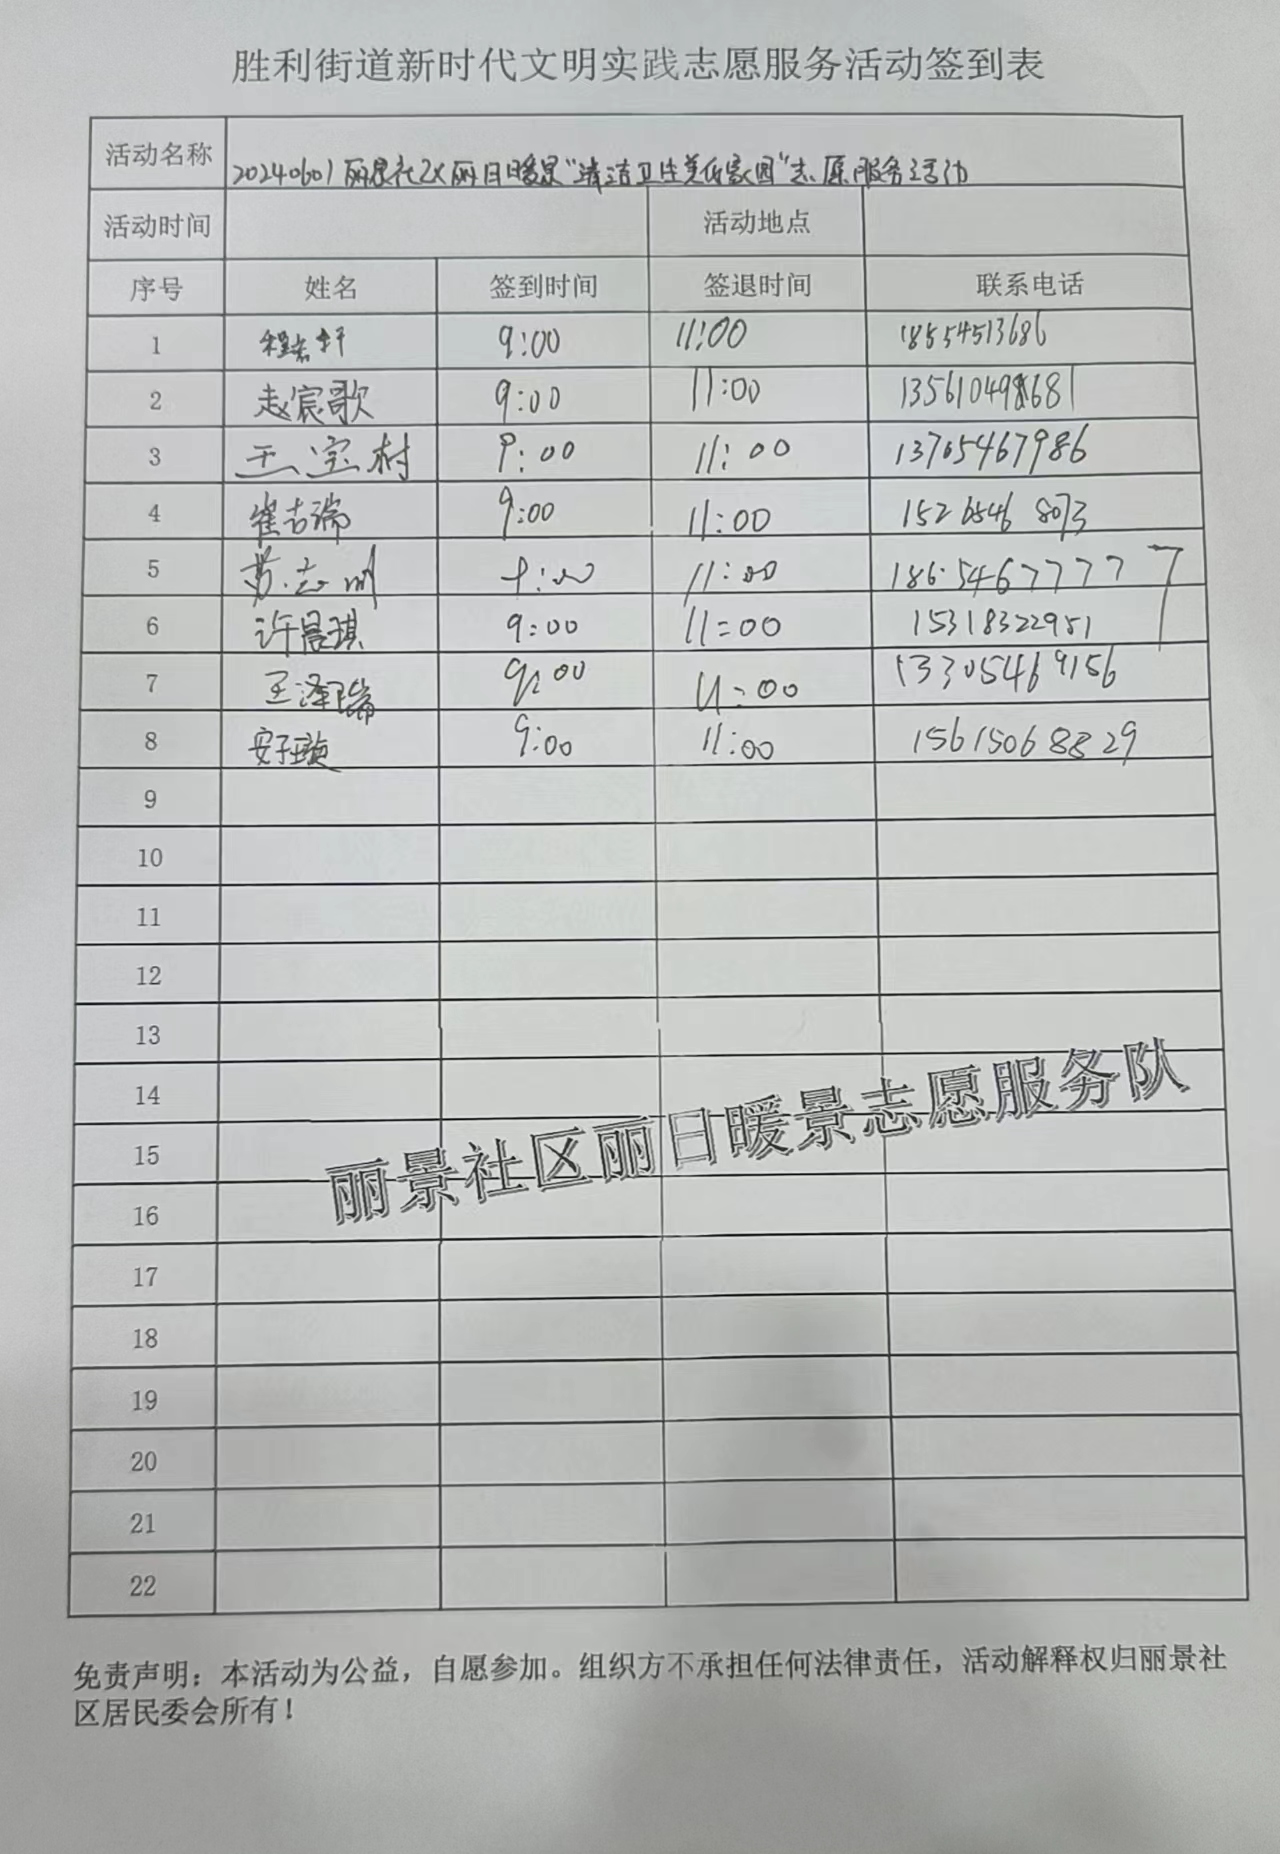 胜利街道新时代文明实践志愿服务活动签到表
活动名称 20240601丽景社区丽日暖景“清洁卫生美低家园”志愿服务活动
活动时间 活动地点
序号 姓名 签到时间 签退时间 联系电话
1 9:00 11:00 18554513686
2 赵宸歌 9:00 11:00
3 王宝树 9:00 11:00 13705467986
4 崔吉瑞 9:00 11:00 1526546 8073
5 苏志川 9:00 11:00 18654677777
6 许晨琪 9:00 11:00 15318322951
7 王泽瑞 9:00 11:00 13305469156
8 安子璇 9:00 11:00 15615068829
9
10
11
12
13
14
15
16
17
18
19
20
21
22
丽景社区丽日暖景志愿服务队
免责声明：本活动为公益，自愿参加。组织方不承担任何法律责任，活动解释权归丽景社
区居民委会所有！